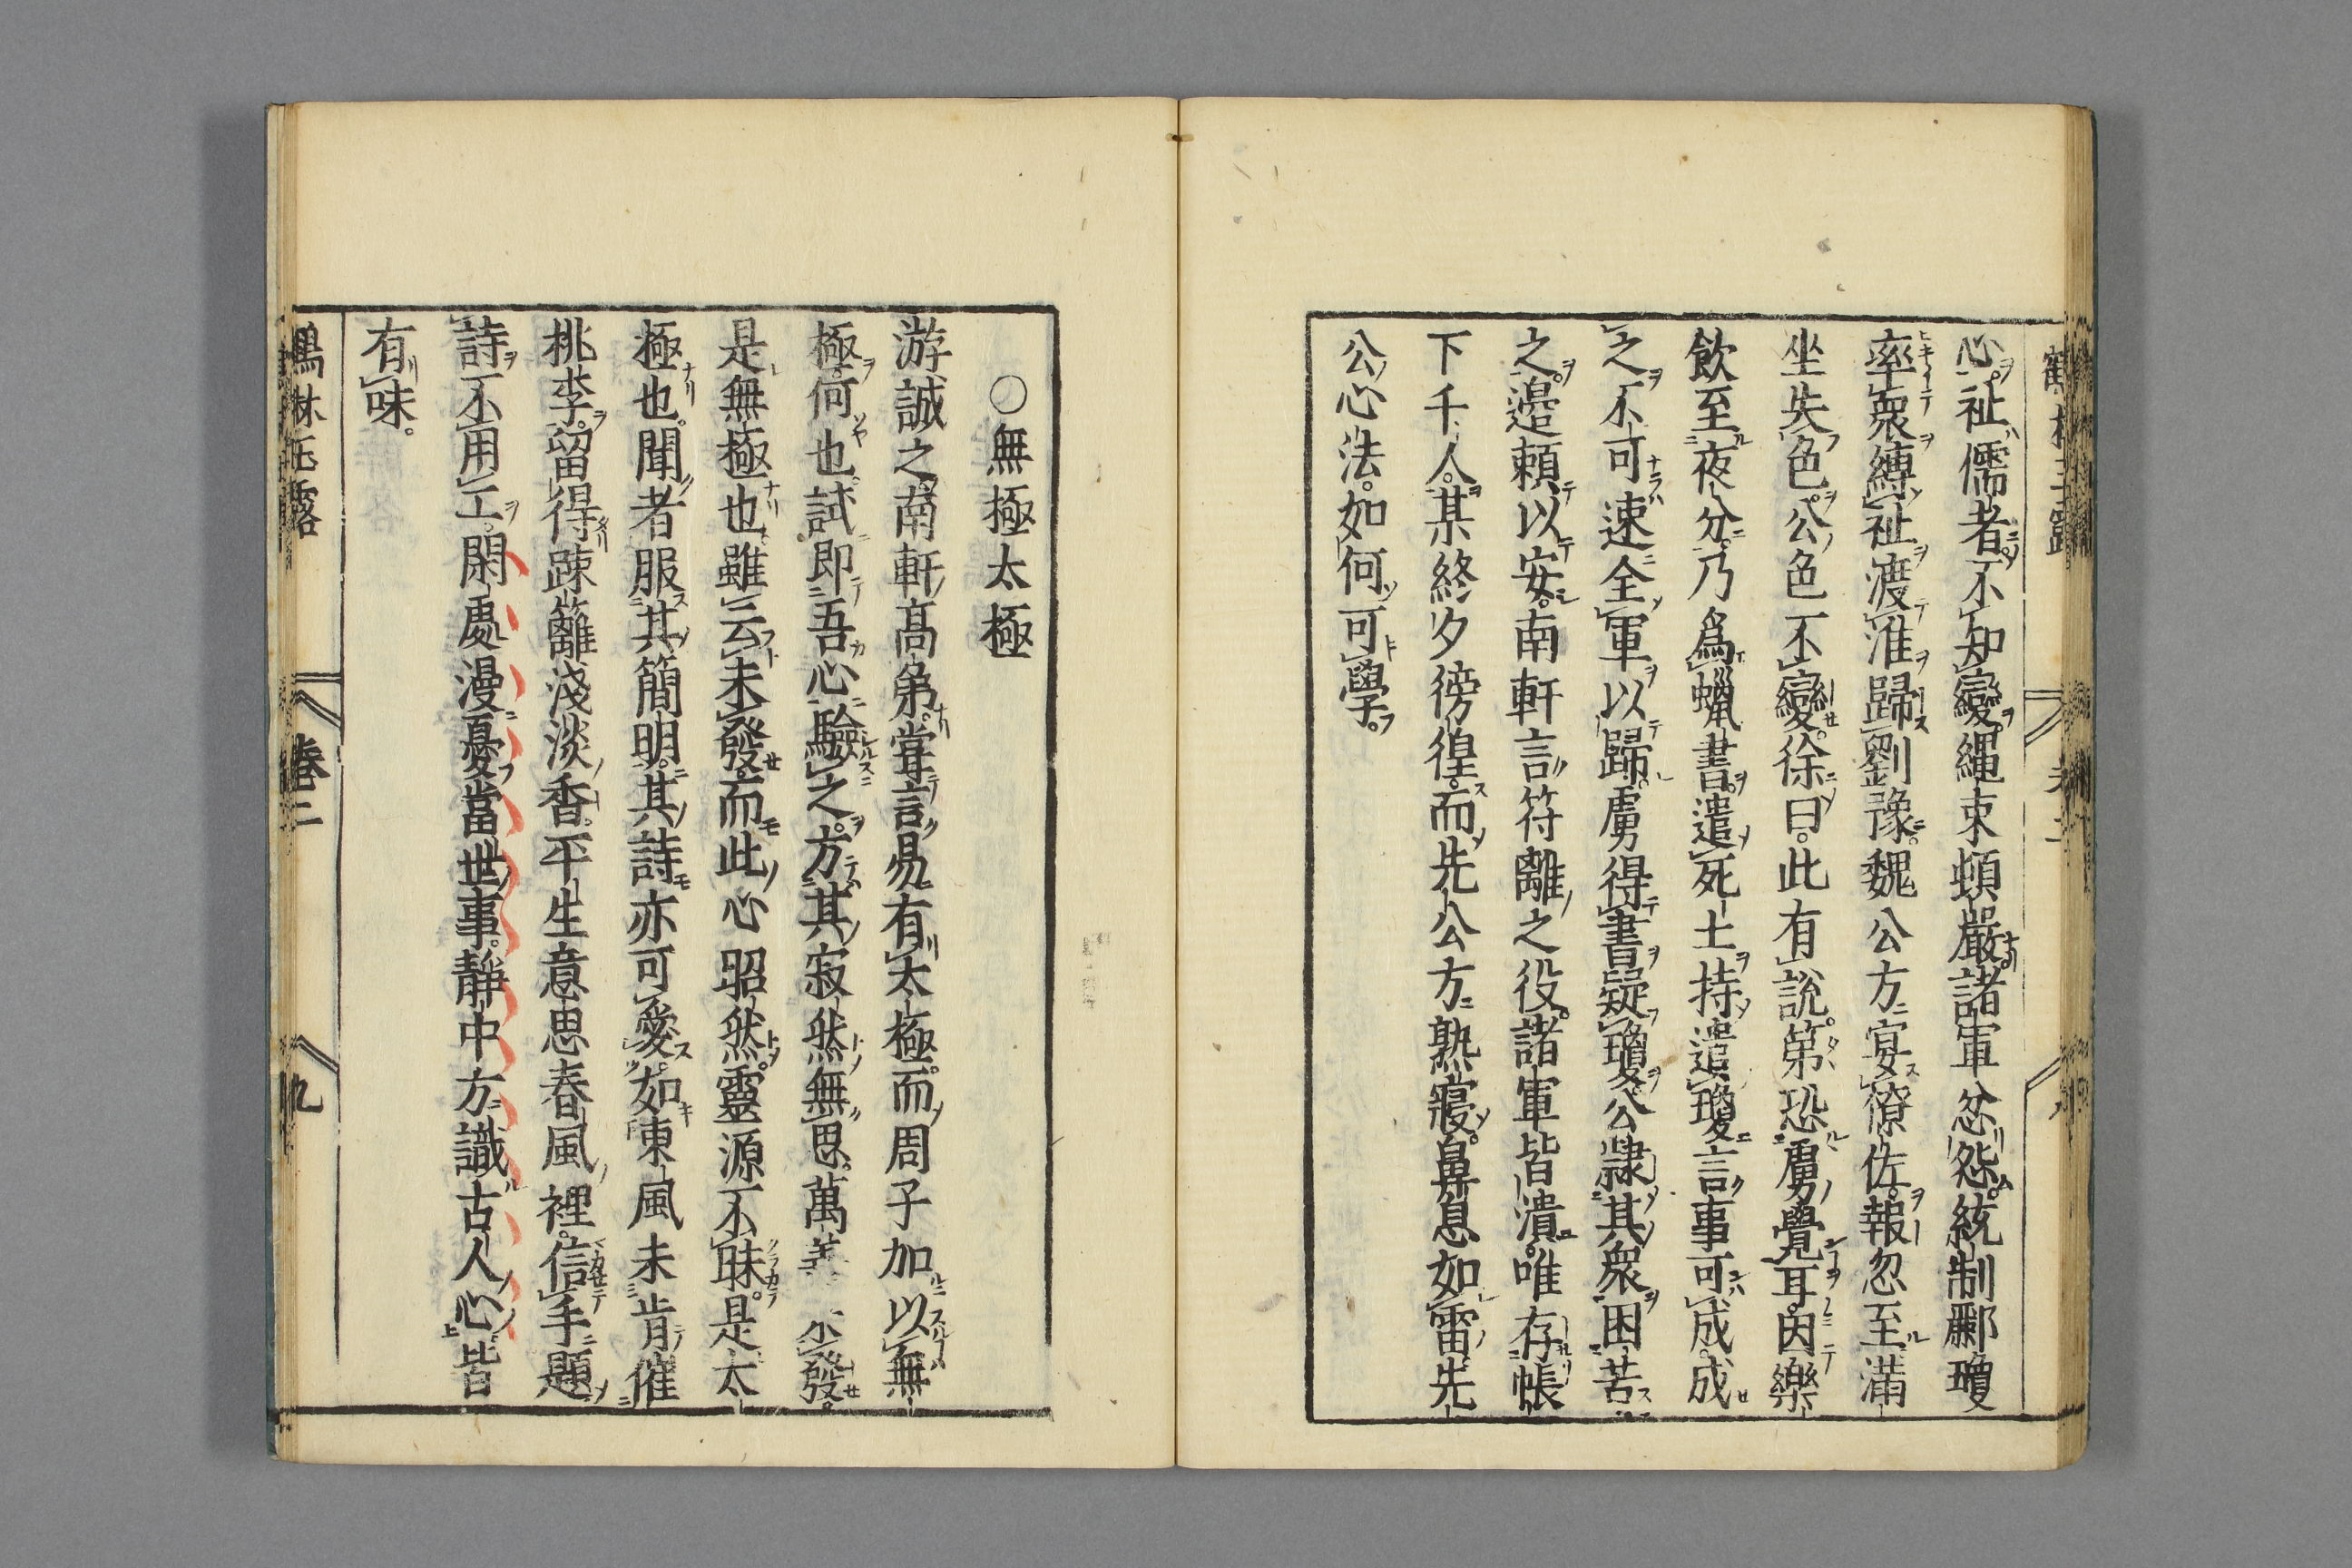 心祉儒者不知變繩束頓嚴諸軍忿怨統制酈瓊
率衆縛祉渡淮歸劉豫魏公方宴僚佐報忽至滿
坐失色公色不變徐曰此有説第恐虜覺耳因樂
飲至夜分乃爲蠟書遣死士持遺瓊言事可成成
之不可速全軍以歸虜得書疑瓊公隷其衆困苦
之邊賴以安南軒言符離之役諸軍皆潰唯存帳
下千人某終夕徬徨而先公方熟寢鼻息如雷先
公心法如何可學
〇無極太極
游誠之南軒高弟嘗言易有太極而周子加以無
極何也試即吾心驗之方其寂然無思萬善未發
是無極也雖云未發而此心昭然靈源不昧是太
極也聞者服其簡明其詩亦可愛如東風未肯催
桃李留得疎籬淺淡香平生意思春風裡信手題
詩不用工閑處漫憂當世事靜中方識古人心皆
有味
鶴林玉露
卷二
九